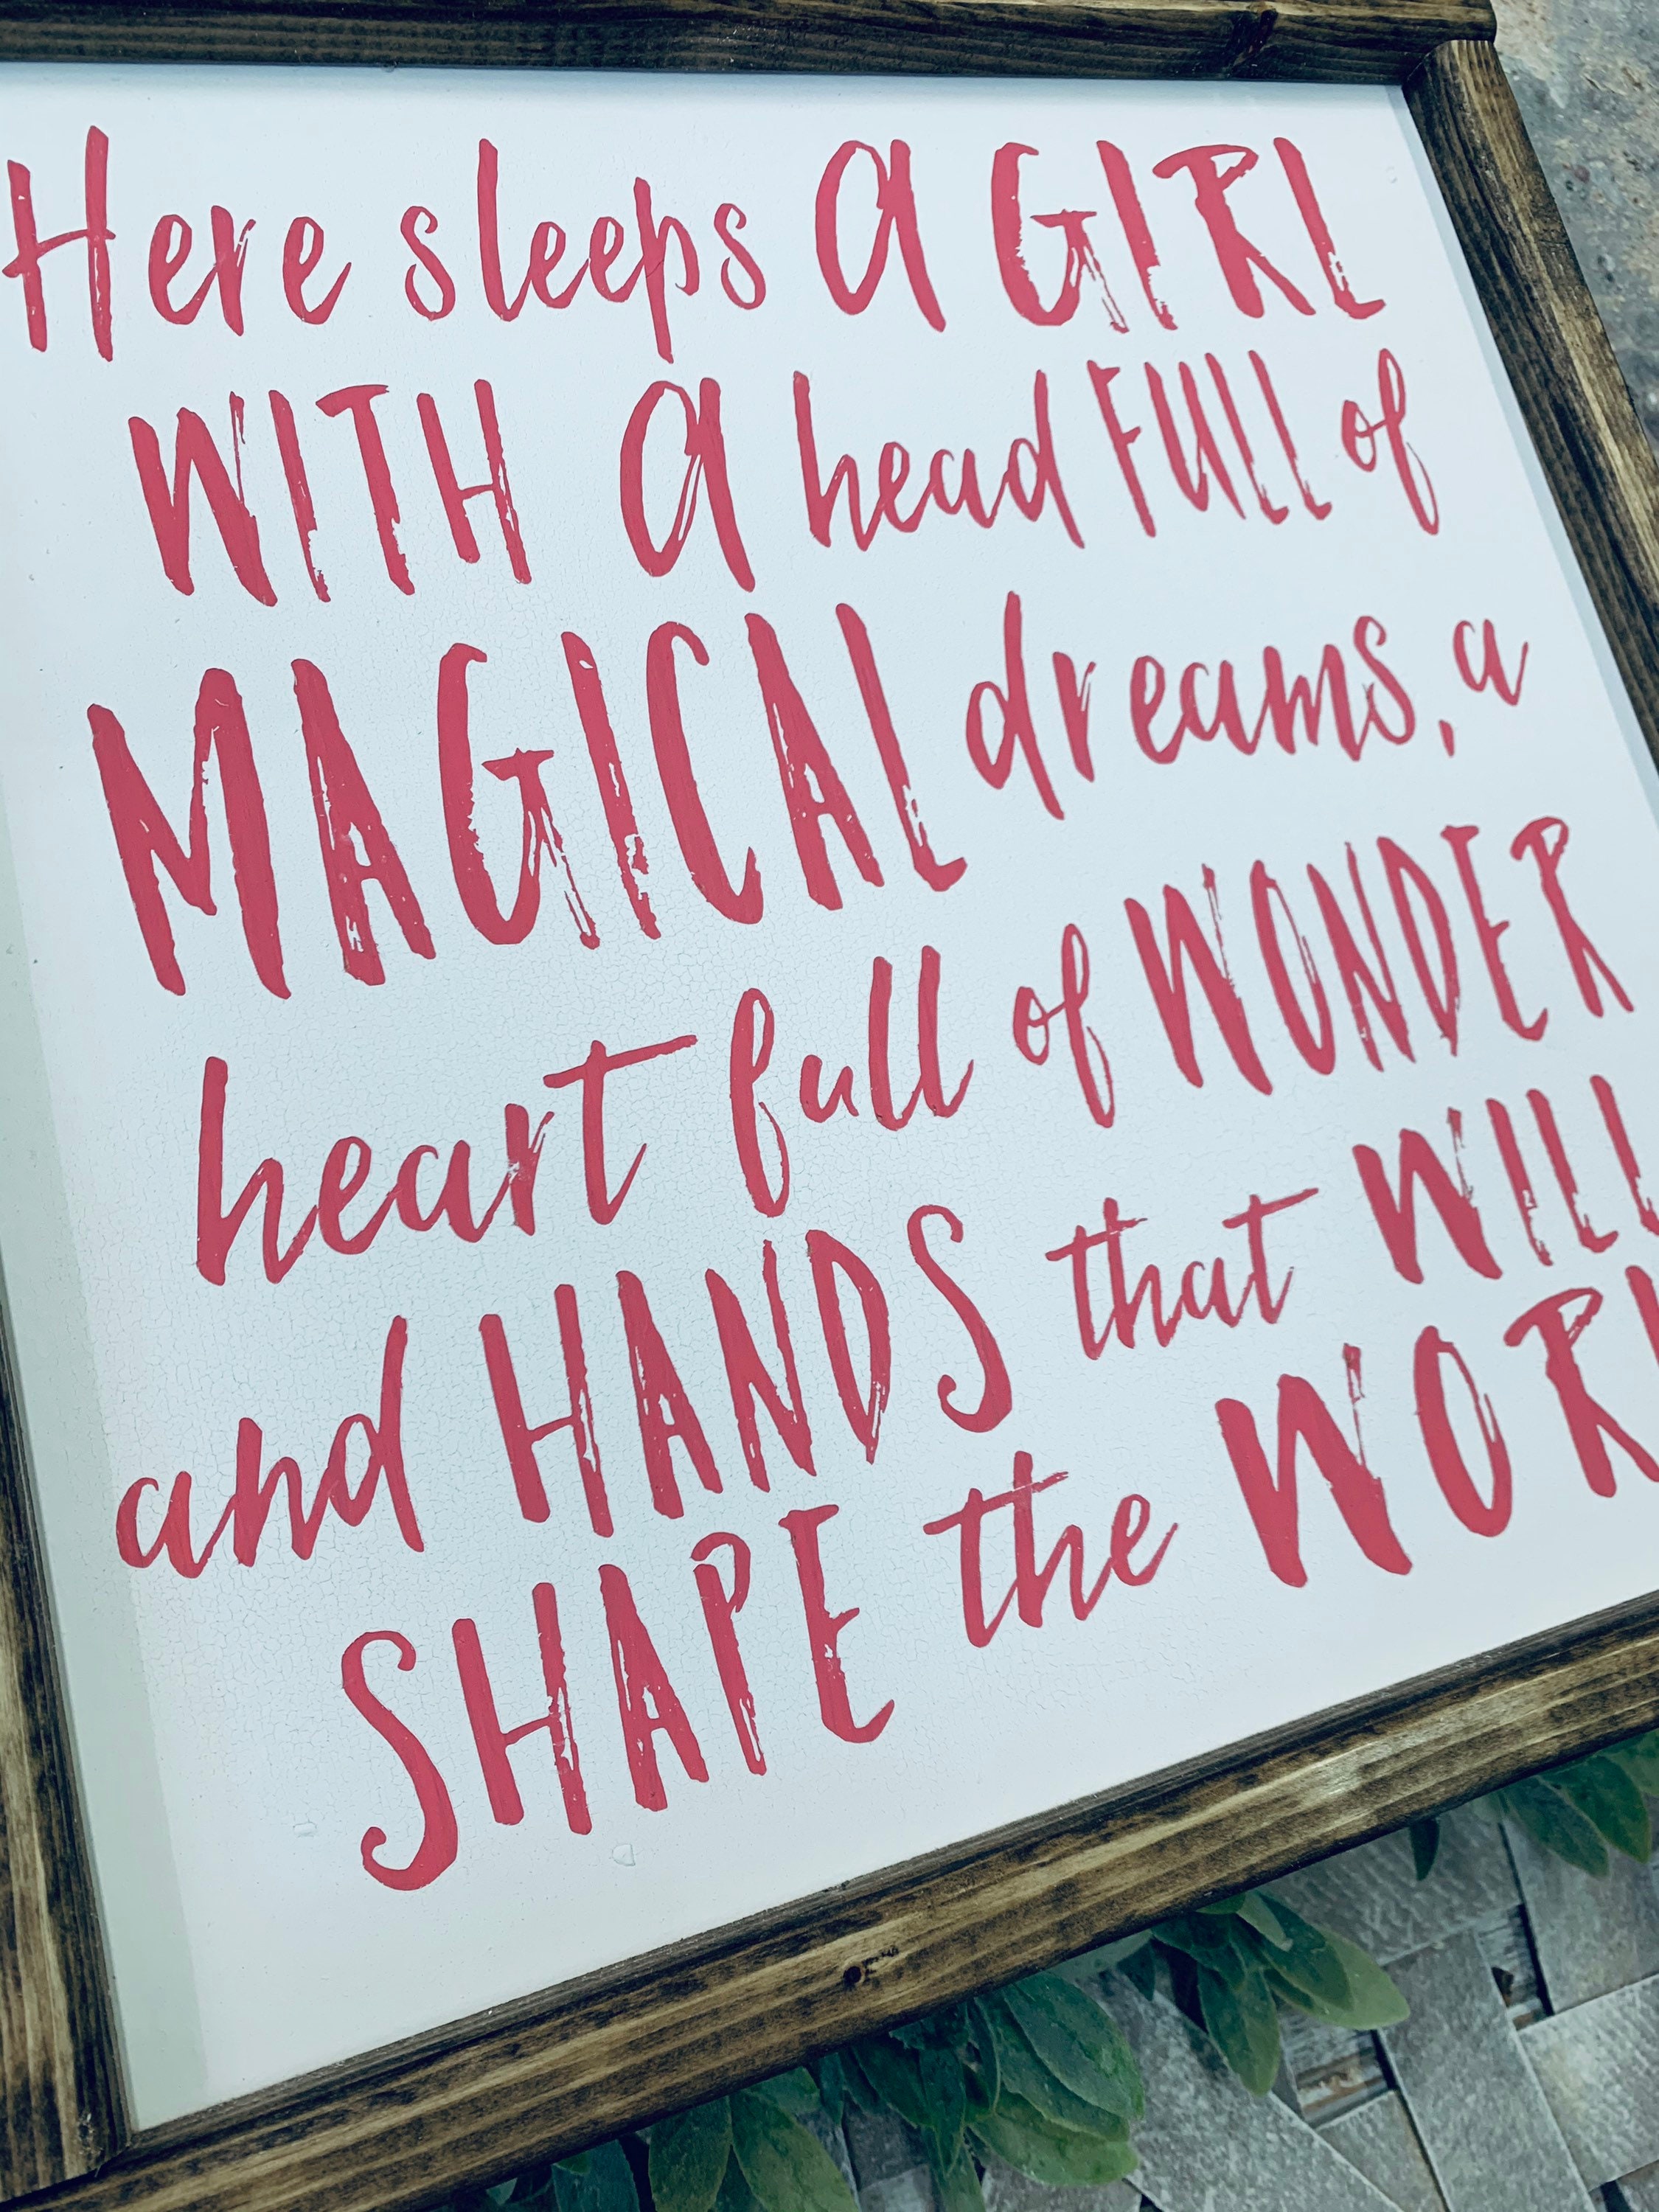 Here sleeps a GIRL
WITH a head FULL of
MAGICAL dreams, a
heart full of WONDER
and HANDS that WILL
SHAPE the WORL